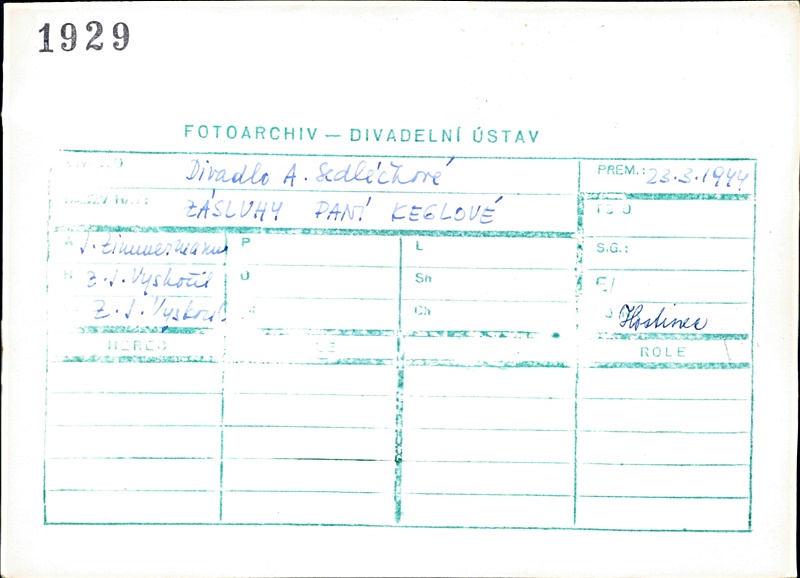 1929
FOTOARCHIV — DIVADELNÍ ÚSTAV
Divadlo A. Sedláčkové PREM.: 23.3.1944
ZÁSLUHY PANÍ KEGLOVÉ
A J. Zimmermann P L S.G.:
R Z. J. Vyskočil Sh
Z. J. Vyskočil Ch Hostinec
HEREC ROLE